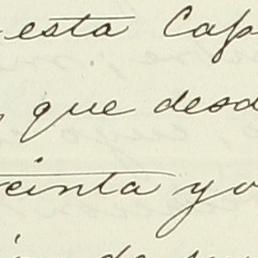 esta Cap
que desd
einta yo